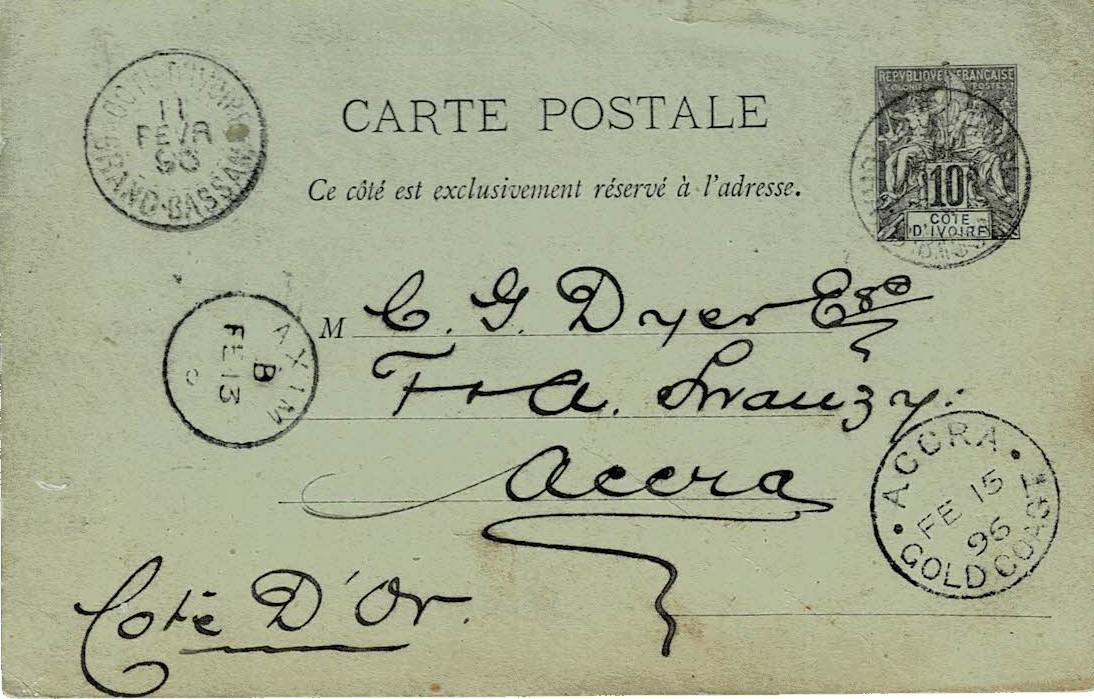 COTE-D'IVOIRE
11
FEVR
96
GRAND-BASSAM
CARTE POSTALE
Ce côté est exclusivement réservé à l'adresse.
REPVBLIQVE FRANÇAISE
COLONIES POSTES
10
COTE
D'IVOIRE
AXIM
B
FE 13
M C. G. Dyer Esq
F & A. Swanzy.
Accra
ACCRA
FE 15
96
GOLD COAST
Coté D'Or.